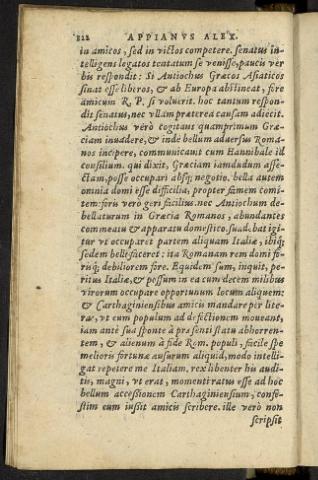 822 APPIANVS ALEX.
in amicos, sed in victos competere. senatus in-
telligens legatos tentatum se venisse, paucis ver
bis respondit: Si Antiochus Græcos Asiaticos
sinat esse liberos, & ab Europa abstineat, fore
amicum R. P. si voluerit. hoc tantum respon-
dit senatus, nec vllam præterea causam adiecit.
Antiochus verò cogitans quamprimùm Græ-
ciam inuadere, & inde bellum aduersus Roma-
nos incipere, communicauit cum Hannibale id
consilium. qui dixit, Græciam iamdudum affe-
ctam, posse occupari absq; negotio. bella autem
omnia domi esse difficilia, propter famem comi-
tem: foris verò geri facilius. nec Antiochum de-
bellaturum in Græcia Romanos, abundantes
commeatu & apparatu domestico. suadebat igi-
tur vt occuparet partem aliquam Italiæ, ibiq;
sedem belli faceret: ita Romanam rem domi fo-
risq; debiliorem fore. Equidem sum, inquit, pe-
ritus Italiæ, & possum in ea cum decem millibus
virorum occupare opportunum locum aliquem:
& Carthaginensibus amicis mandare per lite-
ras, vt eum populum ad defectionem moueant,
iam antè sua sponte à præsenti statu abhorren-
tem, & alienum à fide Rom. populi, facilè spe
melioris fortunæ ausurum aliquid, modo intelli-
gat repetere me Italiam. rex libenter his audi-
tis, magni, vt erat, momenti ratus esse ad hoc
bellum accessionem Carthaginensium, confe-
stim eum iussit amicis scribere. ille verò non
scripsit